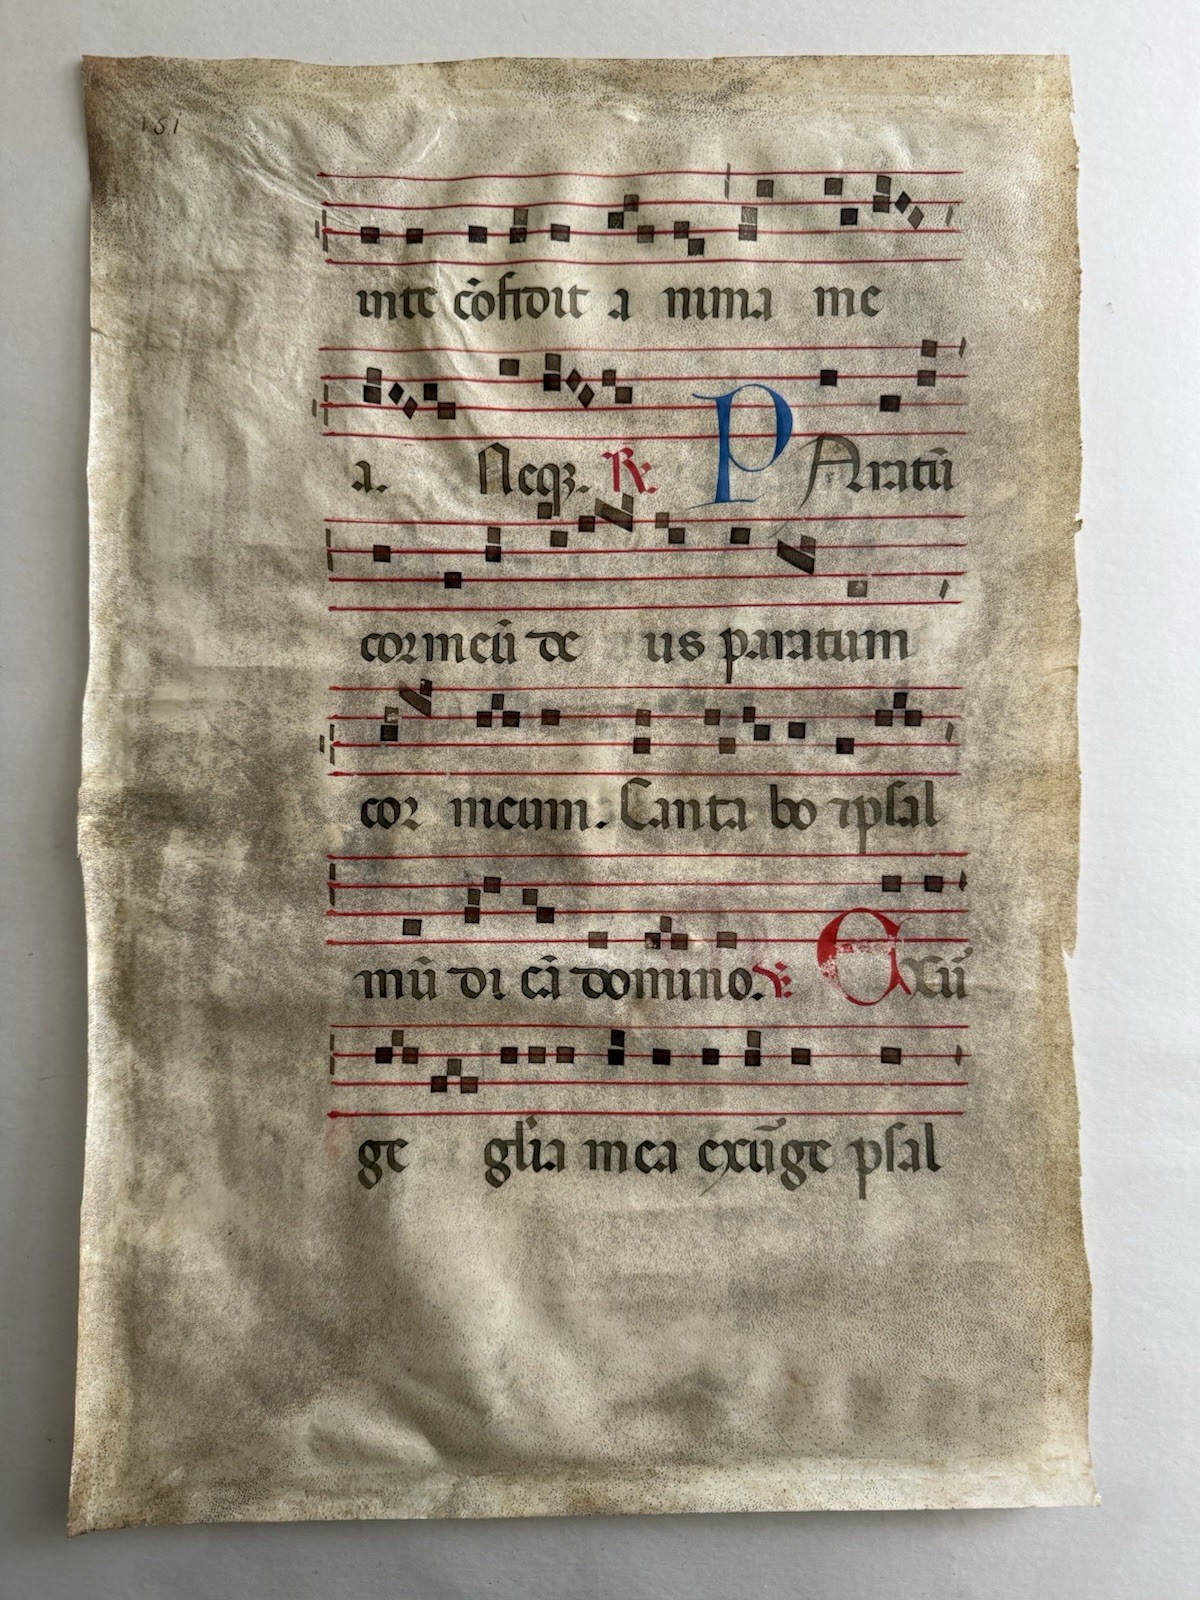 151
inte cõfidit a nima me
a. Neqꝫ. ℟. PAratũ
cor meũ de us paratum
cor meum. Canta bo ⁊ psal
mũ di cã domino. ℣. Exũ
ge gl̃ia mea exũge psal